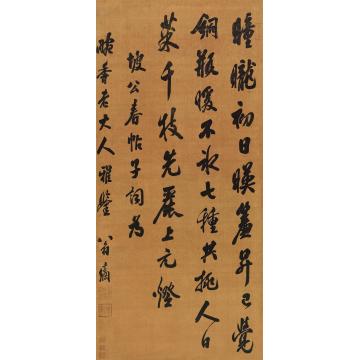 曈曨初日映簾昇已覺
銅瓶暖不冰七種共挑人日
菜千枝先麗上元燈
坡公春帖子詞為
香老大人雅鑒 翁